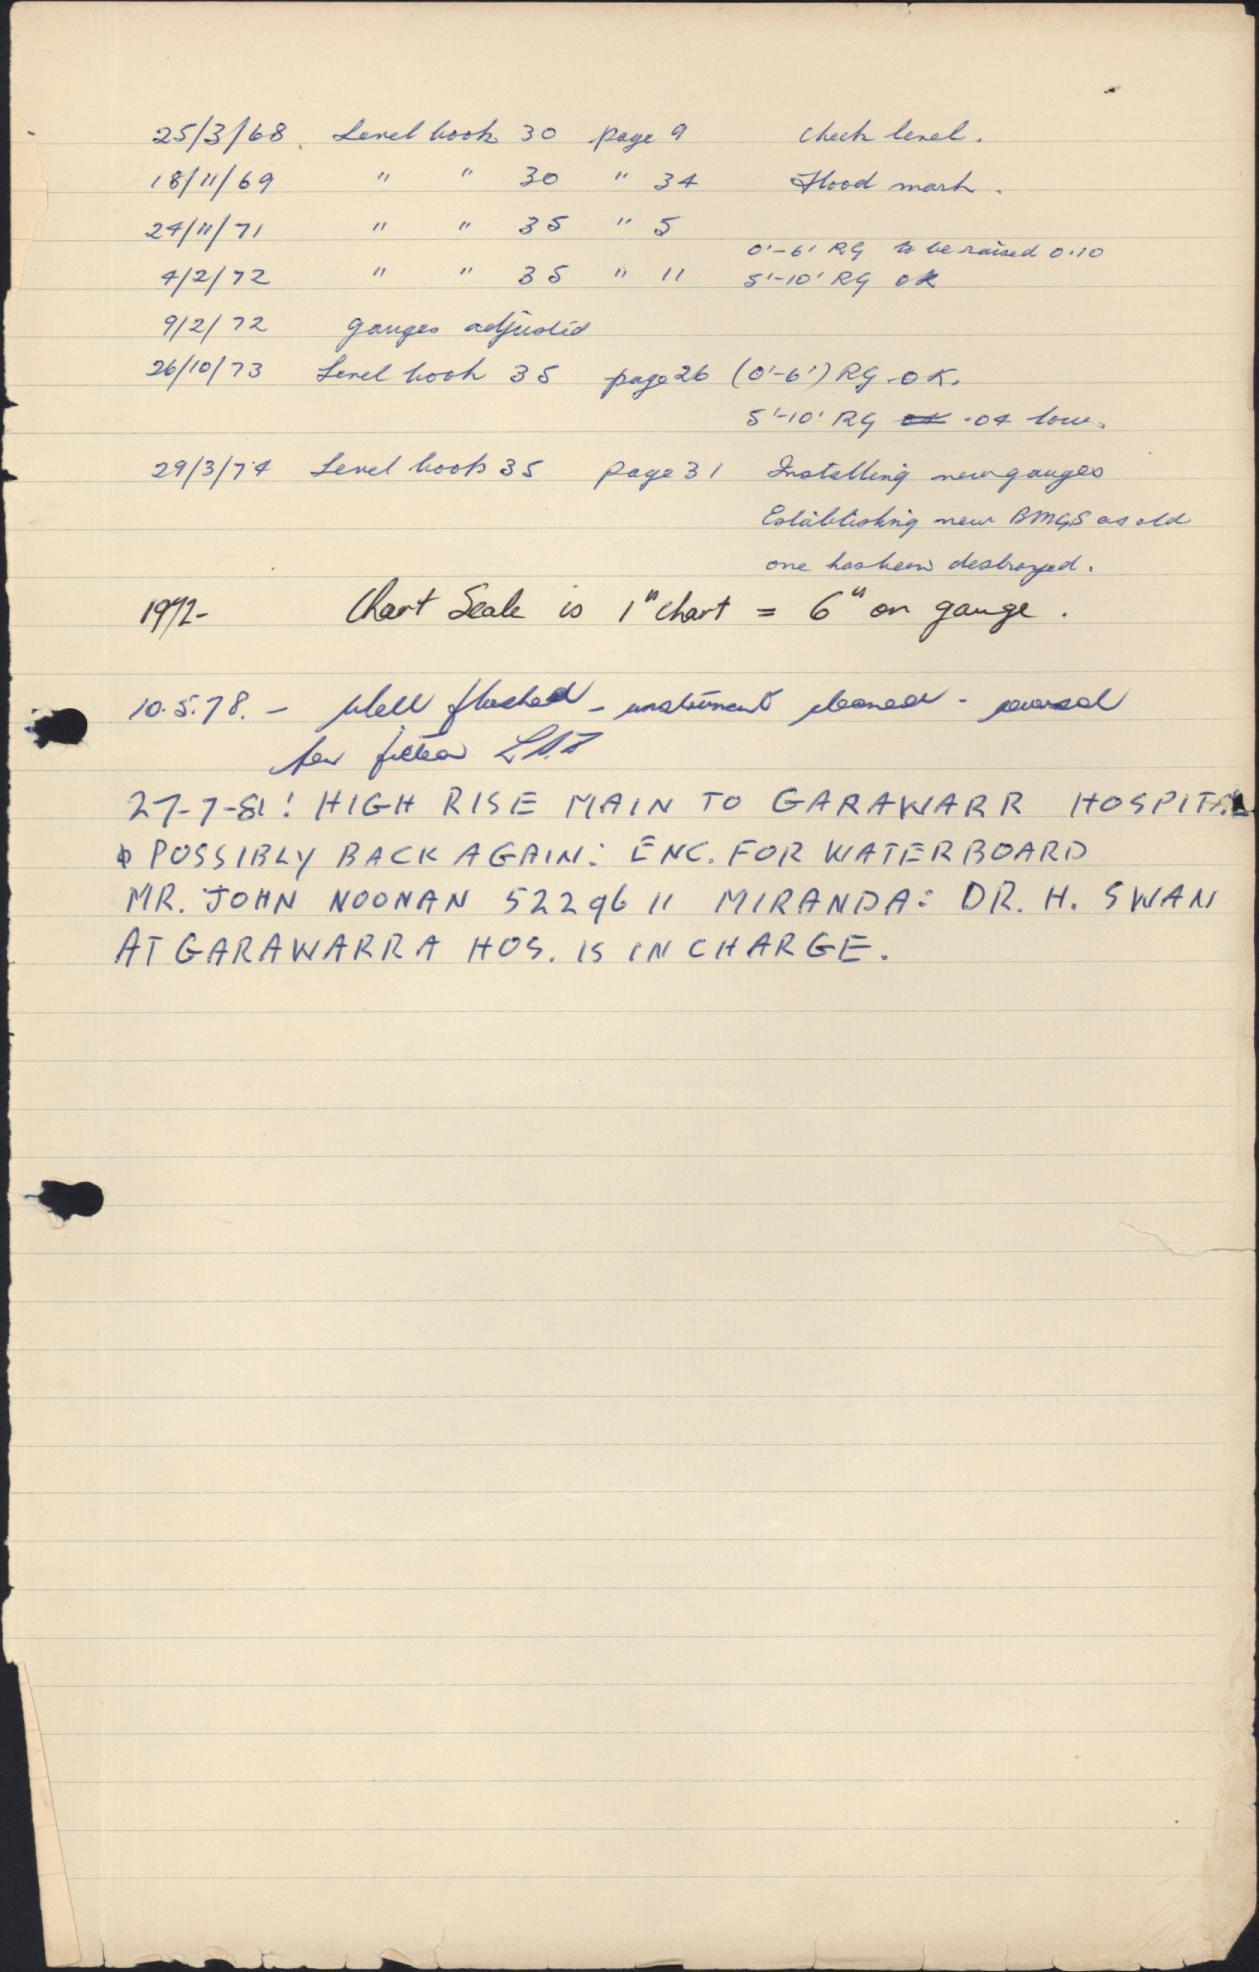 25/3/68. Level book 30 page 9 Check level.
18/11/69 " " 30 " 34 Flood mark.
24/11/71 " " 35 " 5
0'-6' RG to be raised 0.10
4/2/72 " " 35 " 11 5'-10' RG OK
9/2/72 gauges adjusted
26/10/73 Level book 35 page 26 (0'-6') RG OK.
5'-10' RG OK .04 low.
29/3/74 Level book 35 page 31 Installing new gauges
Establishing new BMGS as old
one has been destroyed.
1972- Chart Scale is 1" chart = 6" on gauge.
10.5.78. - Well flushed - instrument cleaned -
27-7-81! HIGH RISE MAIN TO GARAWARR HOSPITAL
& POSSIBLY BACK AGAIN: ENC. FOR WATERBOARD
MR. JOHN NOONAN 5229611 MIRANDA: DR. H. SWAN
AT GARAWARRA HOS. IS IN CHARGE.